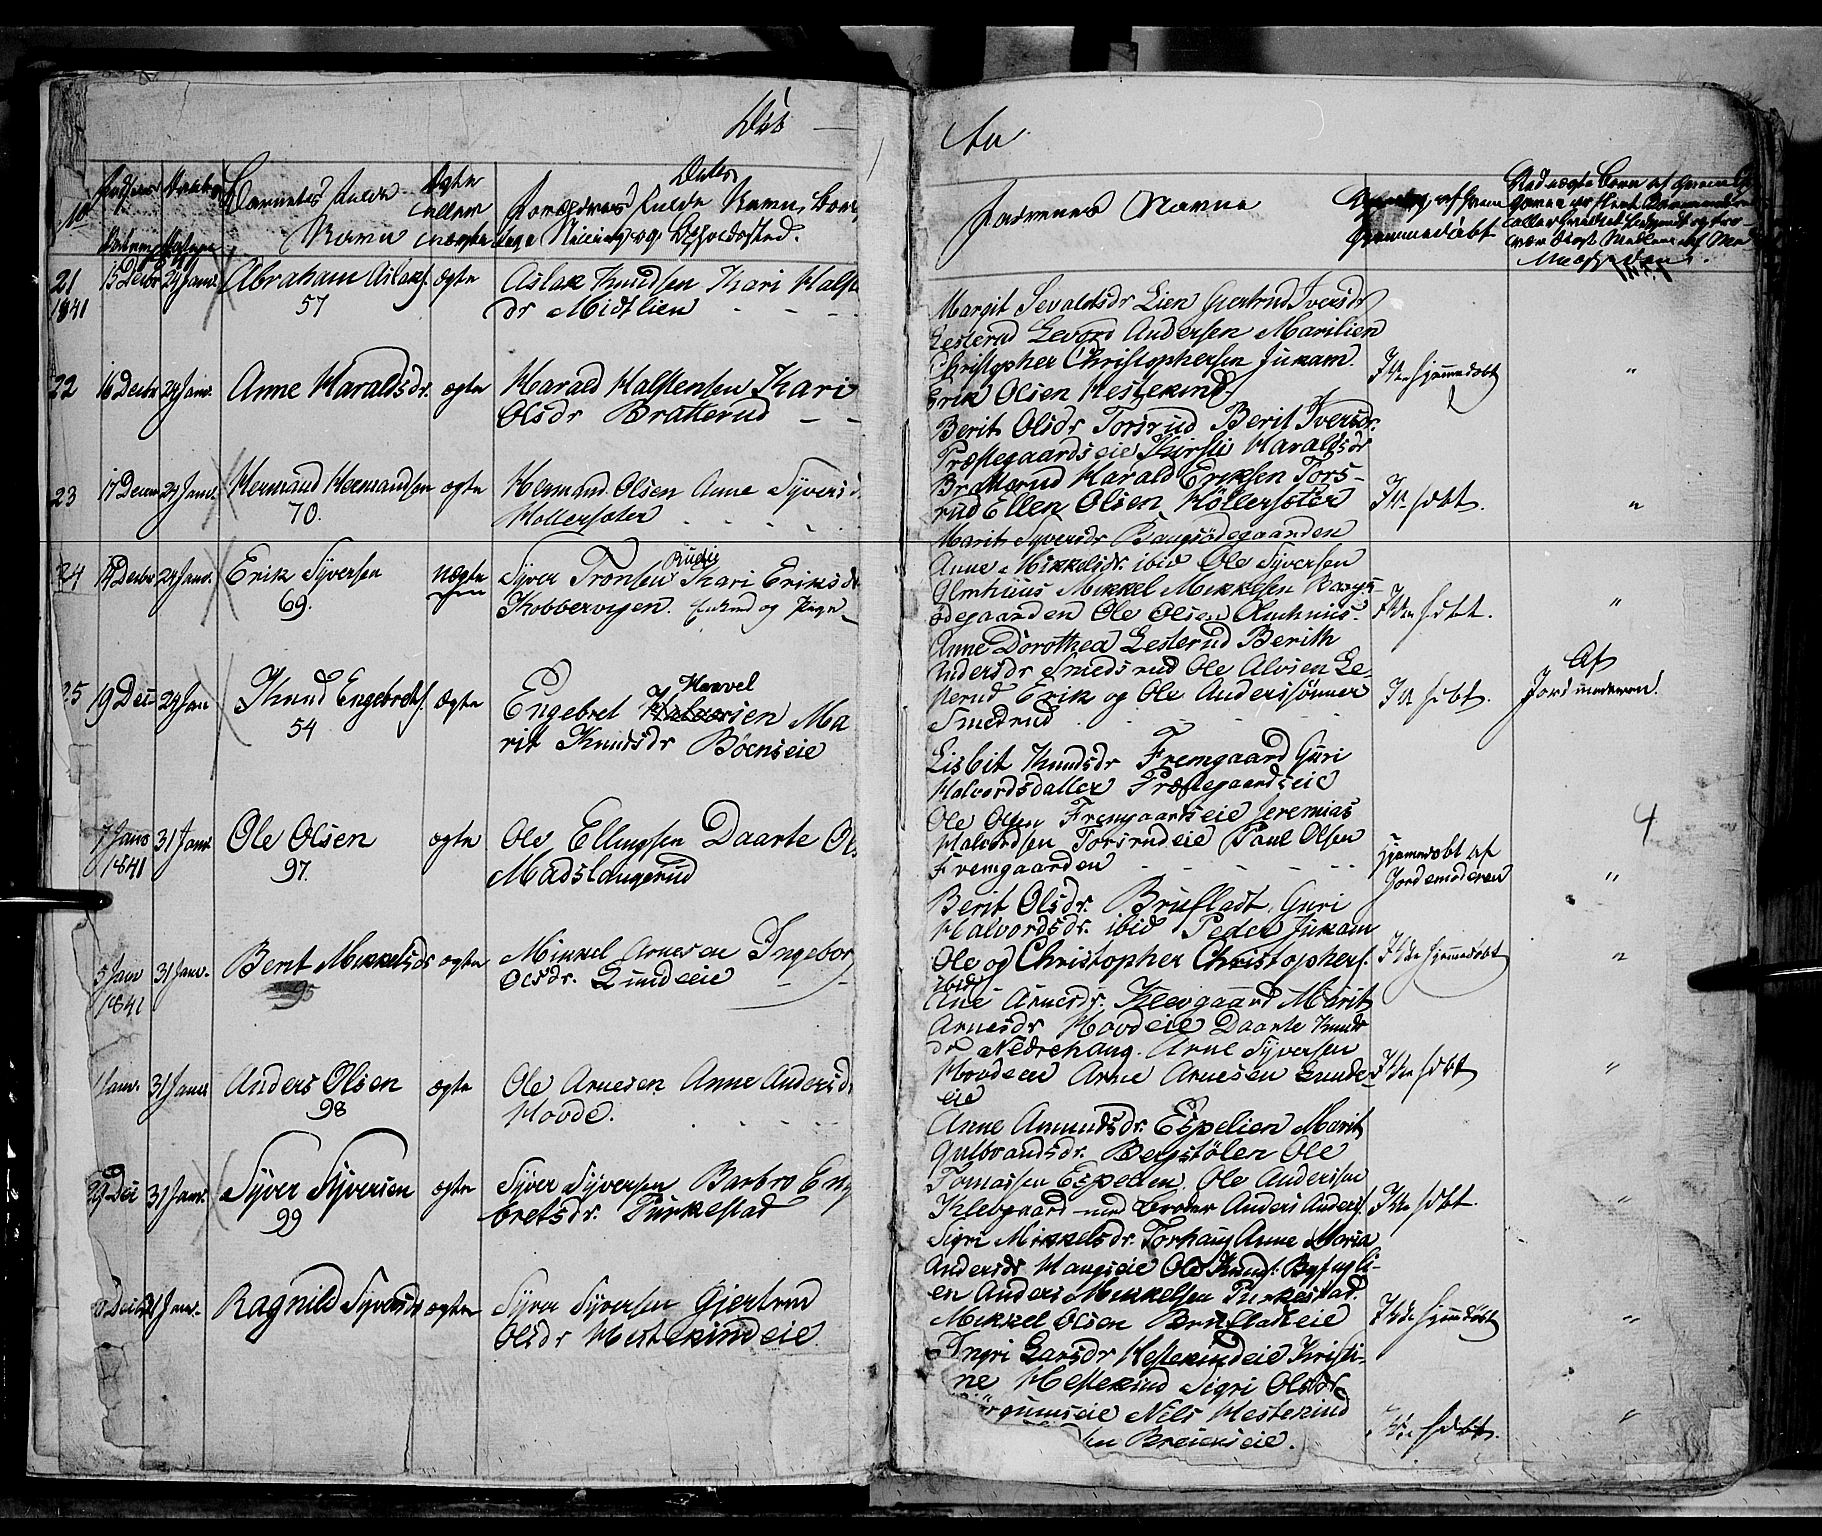 Døb
te
No
Fødsels
Daabs
Barnets fulde
Navn
Ægte
eller
uægte
Forældres fulde Navn,
Faddernes Navne
hjemmedøbt
21
1841
15 Decbr
24 Janr.
Abraham Aslaks.
57
ægte
Aslak Knudsen Kari Halst
dr Midtlien
Margit Sevaldsdr Lien Gjertrud Iversdr
Lesterud Levord Andersen Marilien
Christopher Christophersen Jukam
Erik Olsen Hestekind
Ikke hjemmedøbt
"
22
16 Decbr
24 Janr.
Anne Haraldsdr.
ægte
Harald Halstensen Kari
Olsdr Bratterud
Berit Olsdr Torsrud Berit Iversdr.
Præstegaardseie Kirsti Haraldsdr
Bratterud Harald Eriksen Tors-
rud Ellen Olsen Kollersæter
Ik hdbt.
"
23
17 Decem
24 Janr.
Hermand Hermandsen
70.
ægte
Hermand Olsen Anne Syversd
Kollersæter
Marit Syversdr Baugsødegaarden
Anne Mikkelsdr. ibid Ole Syversen
Olmhuus Mikkel Mikkelsen Baugs
ødegaarden Ole Olsen Olmhuus.
Ikke hdbt.
"
24
14 Decbr
24 Janr.
Erik Syversen
69.
uægte
Syver Tronsen Rudie Kari Eriksdr
Kobbervigen. Enkmd og Pige
Anne Dorothea Lesterud Berith
Andersdr Smedsrud Ole Alvsen Le-
sterud Erik og Ole Anderssønner
Smedrud
Ik hdbt.
Af
Jordmoderen.
25
19 Dec
24 Jan
Knud Engebrets.
54
Ægte
Engebret Haavel
Halvorsen Ma
rit Knudsdr Bøenseie
Lisbit Knudsdr Fremgaard Guri
Halvordsdatter Præstegaardseie
Ole Olsen Fremgaardseie Jeremias
Halvordsen Torsrudeie Paul Olsen
Fremgaarden
Hjemmedøbt af
Jordemoderen
"
4
7 Janr
1841
31 Janr.
Ole Olsen
97.
ægte
Ole Ellingsen Daarte Ols
Madslangerud
Berit Olsdr. Brufladt, Guri
Halvordsdr. ibid Peder Jukam
Ole og Christopher Christophers.
ibid
Ikke hjemmedøbt
"
5 Janr
1841
31 Janr.
Berit Mikkelsdr
95
ægte
Mikkel Arnesen Ingebor
Olsdr. Lundeie
Ane Arnesdr. Klevgaard Marit
Arnesdr Hovdeie Daarte Knuds
dr Nedrehaug. Arne Syversen
Hovdeeie Arne Arnesen Lunde-
eie
Ikke hdbt
"
1 Janr.
31 Janr.
Anders Olsen
98
ægte
Ole Arnesen Anne Andersd.
Hovde.
Anne Amundsdr. Espelien Marit
Gulbrandsdr. Bergstølen Ole
Tomassen Espelien. Ole Andersen
Klevgaard med Broder Anders Anders.
Ikke hdbt.
"
29 Dec
31 Janr.
Syver Syversen
99
ægte
Syver Syversen Barbro Eng
bretsdr. Purkestad
Sigri Mikkelsdr. Torhaug Anne Maria
Andersdr Haugseie Ole Knuds. Byfugli-
en Anders Mikkelsen Purkestad.
Mikkel Olsen Brufladteie
Ikke hjemmedøbt
"
31 Janr.
Ragnild Syversdr
ægte
Syver Syversen Gjertrud
Olsdr Hestekindeie
Ingri Larsdr Hestekindeie Kristi-
ne Hestekind Sigri Olsdr
Nils Hestekind
Breieseie.
Ikke hdbt.
"